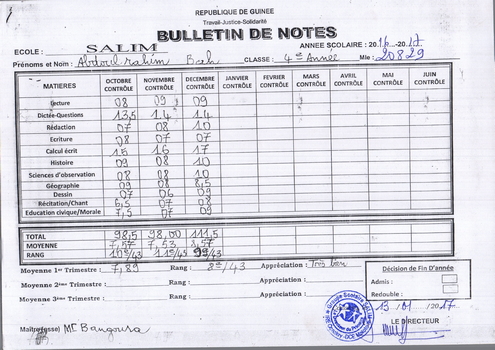 REPUBLIQUE DE GUINEE
Travail-Justice-Solidarité
BULLETIN DE NOTES
ECOLE : SALIM ANNEE SCOLAIRE : 2016-2017
Prénoms et Nom : Abdoul rahim Bah CLASSE : 4e Année Mle : 20829
MATIERES OCTOBRE CONTRÔLE NOVEMBRE CONTRÔLE DECEMBRE CONTRÔLE JANVIER CONTRÔLE FEVRIER CONTRÔLE MARS CONTRÔLE AVRIL CONTRÔLE MAI CONTRÔLE JUIN CONTRÔLE
Lecture 08 09 09
Dictée-Questions 13,5 14 14
Rédaction 07 08 10
Ecriture 08 07 07
Calcul écrit 15 16 17
Histoire 09 08 10
Sciences d'observation 08 08 10
Géographie 09 08 8,5
Dessin 07 06 09
Récitation/Chant 6,5 07 08
Education civique/Morale 7,5 07 09
TOTAL 98,5 98,00 111,5
MOYENNE 7,57 7,53 8,57
RANG
Moyenne 1er Trimestre : 7,89 Rang : 8e/43 Appréciation : Très bien
Moyenne 2ème Trimestre : Rang : Appréciation :
Moyenne 3ème Trimestre : Rang : Appréciation :
Décision de Fin D'année
Admis :
Redouble :
13/01/2017
LE DIRECTEUR
Maître(sse) Mr Bangoura